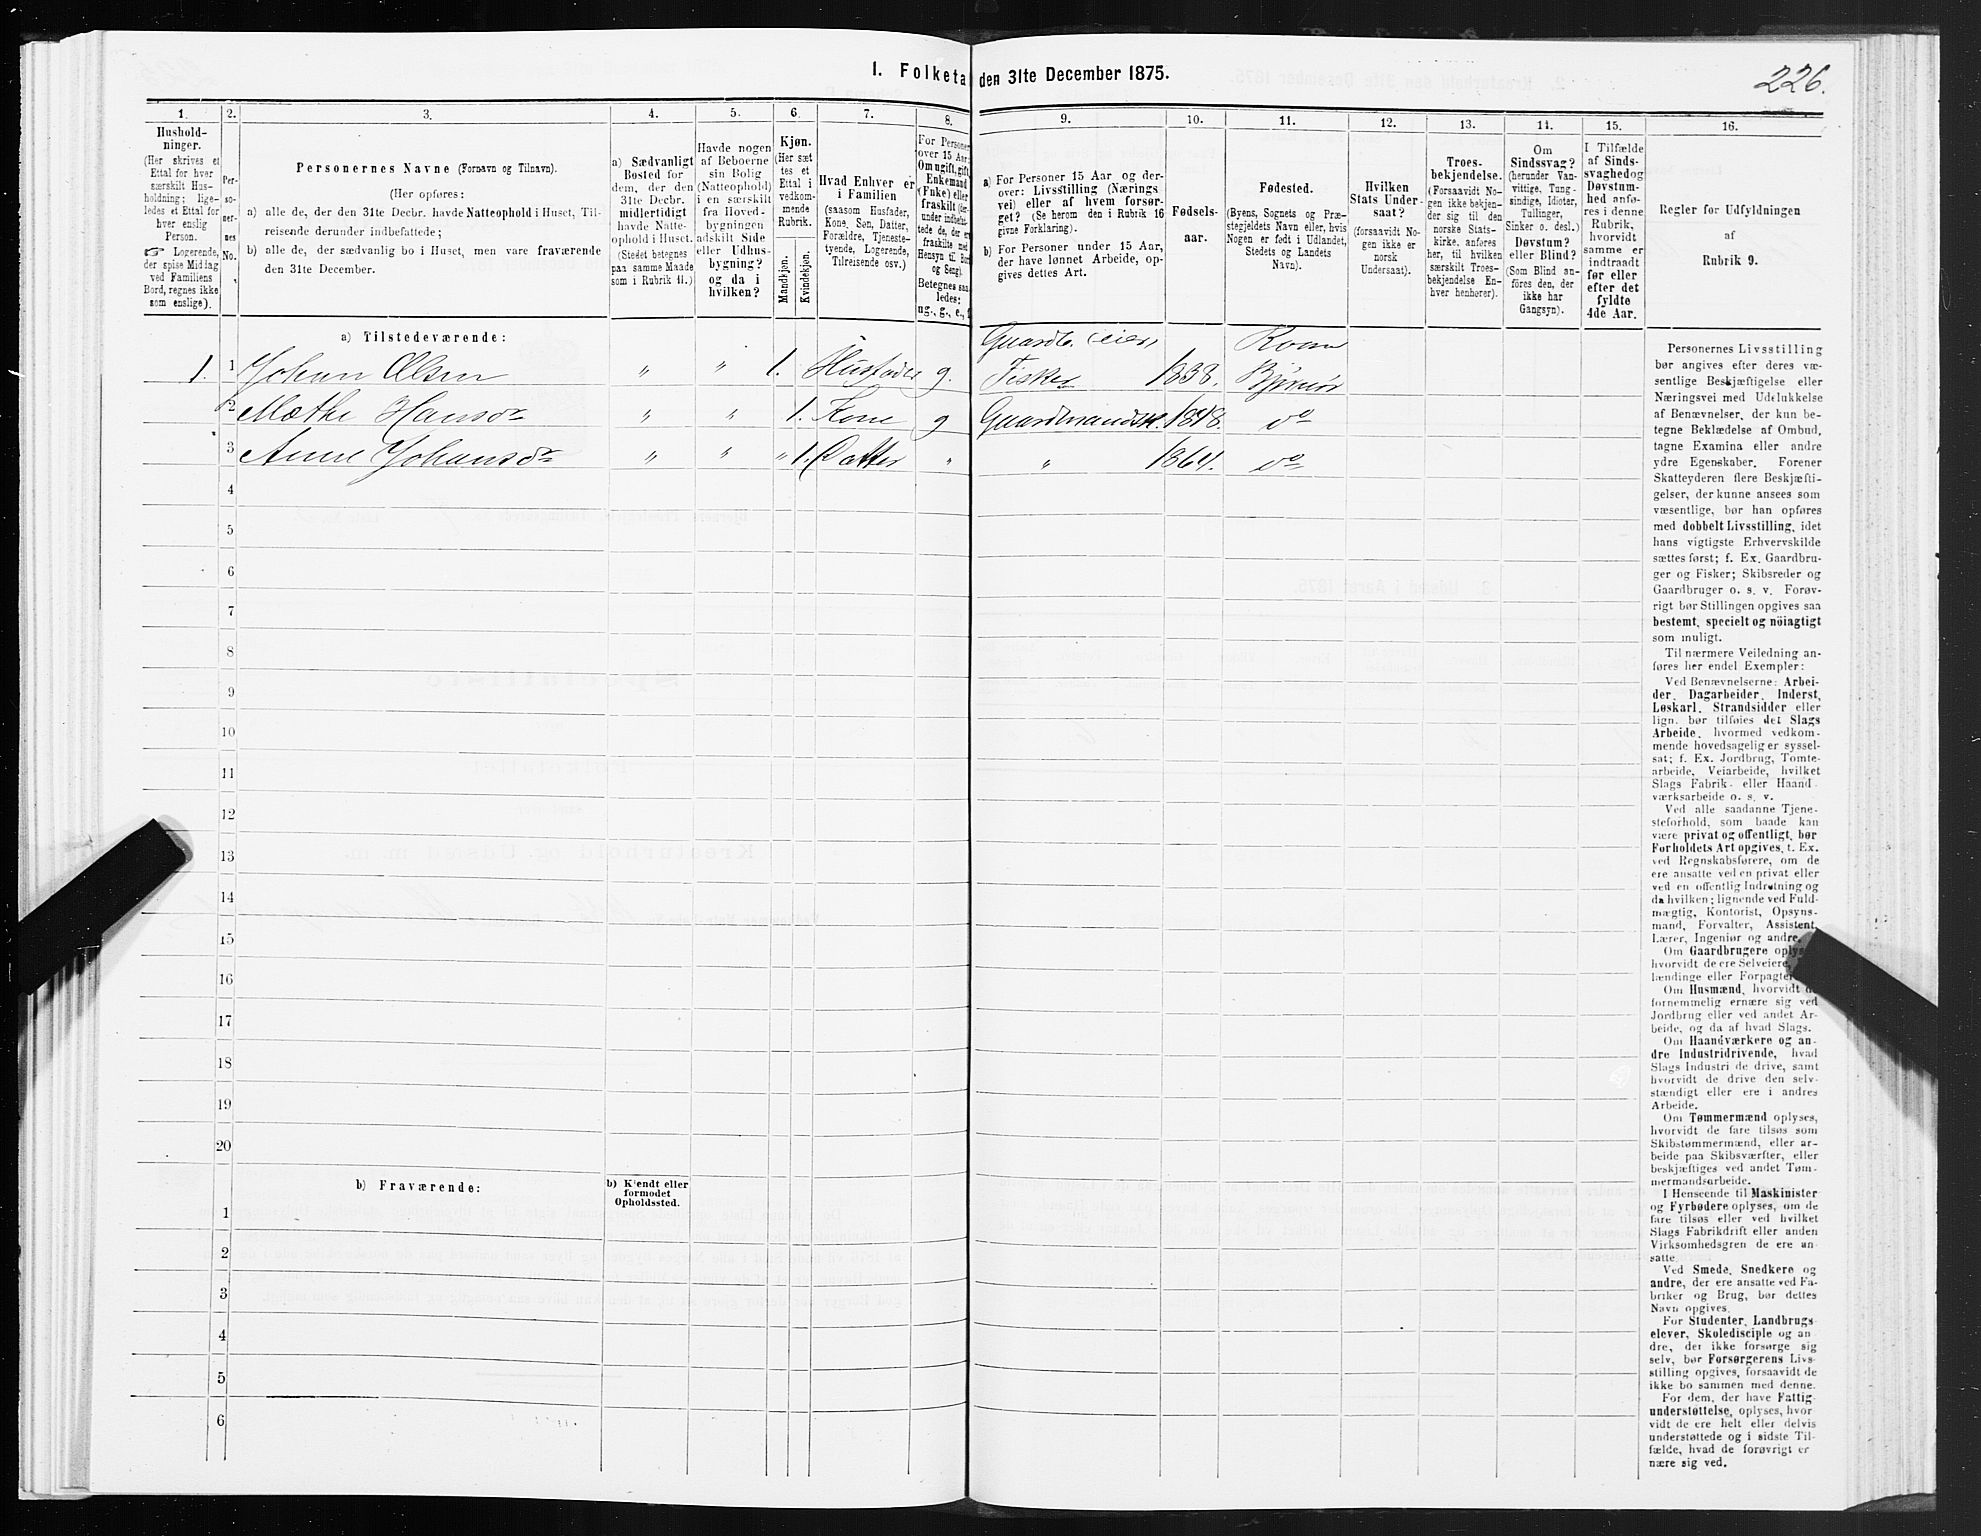 1. Folketal den 31te December 1875.
226.
1.
2.
3.
4.
5.
6.
7.
8.
9.
10.
11.
12.
13.
14.
15.
16.
Hushold-
ninger.
(Her skrives et
Ettal for hver
særskilt Hus-
holdning; lige-
ledes et Ettal for
hver enslig
Person.
☞ Logerende,
der spise Middag
ved Familiens
Bord, regnes ikke
som enslige).
Per-
so-
ner-
nes
No.
Personernes Navne (Fornavn og Tilnavn).
(Her opføres:
a) alle de, der den 31te Decbr. havde Natteophold i Huset, Til-
reisende derunder indbefattede;
b) alle de, der sædvanlig bo i Huset, men vare fraværende
den 31te December.
a) Sædvanligt
Bosted for
dem, der den
31te Decbr.
midlertidigt
havde Natte-
ophold i Huset.
(Stedet betegnes
paa samme Maade
som i Rubrik 11.)
Havde nogen
af Beboerne
sin Bolig
(Natteophold)
i en særskilt
fra Hoved-
bygningen
adskilt Side
eller Udhus-
bygning?
og da i
hvilken?
Kjøn.
(Her sæt-
tes et
Ettal i
vedkom-
mende
Rubrik.
Mandkjøn.
Kvindekjøn.
Hvad Enhver er
i Familien
(saasom Husfader,
Kone, Søn, Datter,
Forældre, Tjeneste-
tyende, Logerende,
Tilreisende osv.)
For Personer
over 15 Aar:
Om ugift, gift,
Enkemand
(Enke) eller
fraskilt (der-
under indbefat-
tede de, der ere
fraskilte med
Hensyn til Bord
og Seng).
Betegnes saa-
ledes:
ug., g., e., f.
a) For Personer 15 Aar og der-
over: Livsstilling (Nærings-
vei) eller af hvem forsør-
get? (Se herom den i Rubrik 16
givne Forklaring).
b) For Personer under 15 Aar,
der have lønnet Arbeide, op-
gives dettes Art.
Fødsels-
aar.
Fødested.
(Byens, Sognets og Præ-
stegjeldets Navn eller, hvis
Nogen er født i Udlandet,
Stedets og Landets
Navn).
Hvilken
Stats Under-
saat?
(forsaavidt No-
gen ikke er
norsk
Undersaat).
Troes-
bekjendelse.
(Forsaavidt No-
gen ikke bekjen-
der sig til den
norske Stats-
kirke, anføres
her, til hvilken
særskilt Troes-
bekjendelse En-
hver henhører).
Om
Sindssvag?
(herunder Van-
vittige, Tung-
sindige, Idioter,
Tullinger,
Sinker o. desl.)
Døvstum?
eller Blind?
(Som Blind an-
føres den, der
ikke har
Gangsyn).
I Tilfælde
af Sinds-
svaghed og
Døvstum-
hed anfø-
res i denne
Rubrik,
hvorvidt
samme er
indtraadt
før eller
efter det
fyldte
4de Aar.
Regler for Udfyldningen
af
Rubrik 9.
a) Tilstedeværende:
Gaardb. (eier) Roan
1. 1 Johan Olsen " " 1. Husfader g. Fisker 1838. Bjørnør
2 Mæthe Hansdr " " 1. Kone g Gaardmandsk. 1848. do
3 Anne Johansdr " " " 1. Datter " " 1864. do
4
5
6
7
8
9
10
11
12
13
14
15
16
17
18
19
20
b) Fraværende:
b) Kjendt eller
formodet
Opholdssted.
1
2
3
4
5
6
Personernes Livsstilling
bør angives efter deres væ-
sentlige Beskjæftigelse eller
Næringsvei med Udelukkelse
af Benævnelser, der kun be-
tegne Beklædelse af Ombud,
tagne Examina eller andre
ydre Egenskaber. Forener
Skatteyderen flere Beskjæfti-
gelser, der kunne ansees som
væsentlige, bør han opføres
med dobbelt Livsstilling, idet
hans vigtigste Erhvervskilde
sættes først; f. Ex. Gaardbru-
ger og Fisker; Skibsreder og
Gaardbruger o. s. v. Forøv-
rigt bør Stillingen opgives saa
bestemt, specielt og nöiagtigt
som muligt.
Til nærmere Veiledning an-
føres her endel Exempler:
Ved Benævnelserne: Arbei-
der, Dagarbeider, Inderst,
Løskarl, Strandsidder eller
lign. bør tilføies det Slags
Arbeide, hvormed vedkom-
mende hovedsagelig er syssel-
sat; f. Ex. Jordbrug, Tomte-
arbeide, Veiarbeide, hvilket
Slags Fabrik- eller Haand-
værksarbeide o. s. v.
Ved alle saadanne Tjene-
steforhold, som baade kan
være privat og offentligt, bør
Forholdets Art opgives, t. Ex.
ved Regnskabsførere, om de
ere ansatte ved en privat eller
ved en offentlig Indretning og
da hvilken; lignende ved Fuld-
mægtig, Kontorist, Opsyns-
mand, Forvalter, Assistent,
Lærer, Ingeniør og andre.
Om Gaardbrugere oplyses,
hvorvidt de ere Selveiere,
lændinge eller Forpagtere.
Om Husmænd, hvorvidt de
fornemmelig ernære sig ved
Jordbrug eller ved andet Ar-
beide, og da af hvad Slags.
Om Haandværkere og an-
dre Industridrivende, hvad
Slags Industri de drive, samt
hvorvidt de drive den selv-
stændigt eller ere i andres
Arbeide.
Om Tømmermænd oplyses,
hvorvidt de fare tilsøs som
Skibstømmermænd, eller ar-
beide paa Skibsværfter, eller
beskjæftiges ved andet Tøm-
mermandsarbeide.
I Henseende til Maskinister
og Fyrbødere oplyses, om de
fare tilsøs eller ved hvilket
Slags Fabrikdrift eller anden
Virksomhedsgren de ere an-
satte.
Ved Smede, Snedkere og
andre, der ere ansatte ved Fa-
briker og Brug, bør dettes
Navn opgives.
For Studenter, Landbrugs-
elever, Skoledisciple og an-
dre, der ikke forsørge sig
selv, bør Forsørgerens Livs-
stilling opgives, forsaavidt de
ikke bo sammen med denne.
For dem, der have Fattig-
understøttelse, oplyses, hvor-
vidt de ere helt eller delvis
understøttede og i sidste Til-
fælde, hvad de forøvrigt er-
nære sig ved.